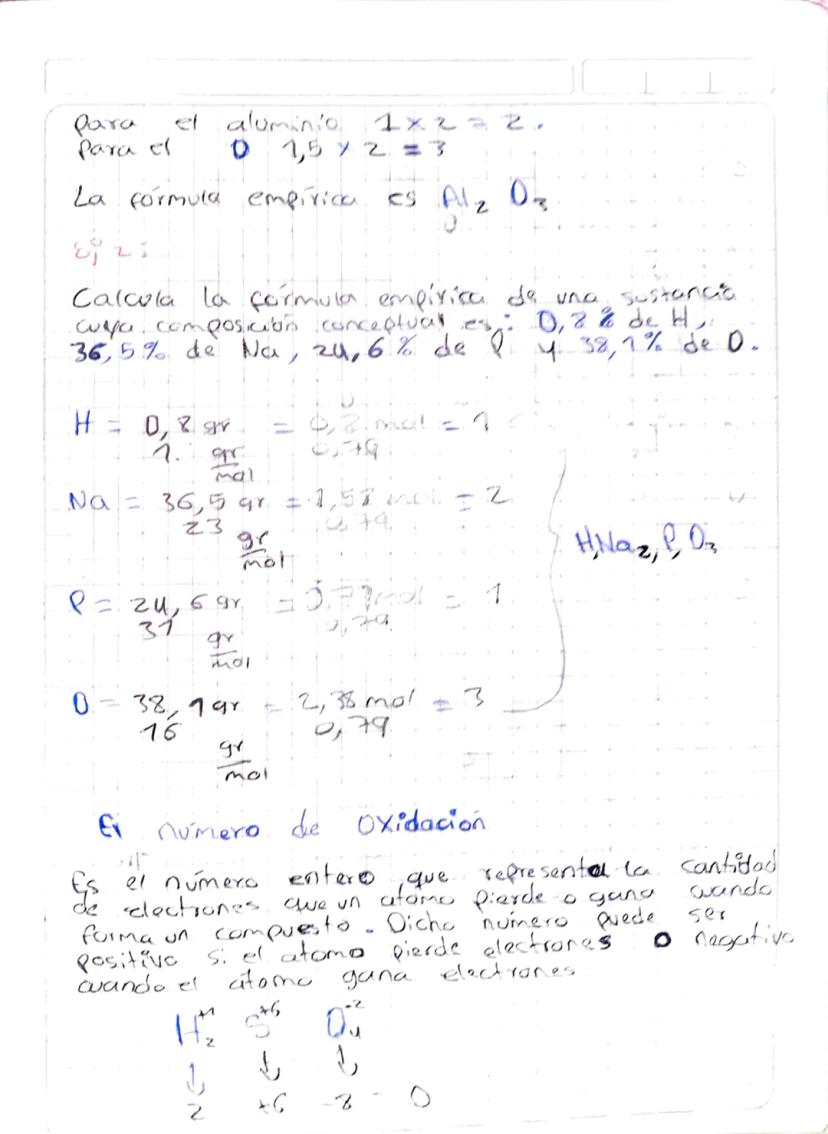 para el aluminio 1 x 2 = 2.
para el O 1,5 x 2 = 3
La fórmula empírica es Al₂ O₃
Ej 2:
Calcula la fórmula empírica de una sustancia
cuya composición conceptual es: 0,8 % de H,
36,5% de Na, 24,6 % de P y 38,1% de O.
H = 0,8 gr = 0,8 mol = 1
1. gr 0,79
mol
Na = 36,5 gr = 1,58 mol = 2
23 gr 0,79
mol
H,Na₂,P,O₃
P = 24,6 gr = 0,79 mol = 1
31 gr 0,79
mol
O = 38,1 gr = 2,38 mol = 3
16 gr 0,79
mol
El número de oxidación
Es el número entero que representa la cantidad
de electrones que un atomo pierde o gana cuando
forma un compuesto. Dicho número puede ser
positivo si el atomo pierde electrones o negativo
cuando el átomo gana electrones
H₂⁺¹ S⁺⁶ O₄⁻²
↓ ↓ ↓
2 +6 -8 = 0